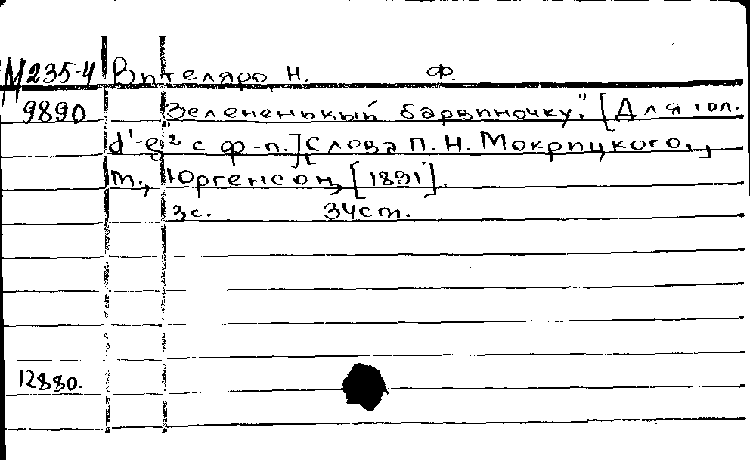 М235-4 Вителяро, Н. Ф.
9890 "Зелененький барвиночку." [Для гол.
d'-g² с ф-п.] Слова П. Н. Мокрицкого.,
М., Юргенсон, [1891].
3с. 34cm.
12880.